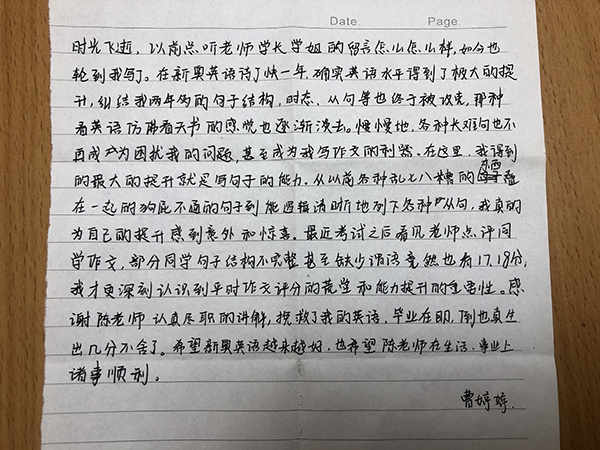 Date. Page
时光飞逝，以前总听老师学长学姐的留言怎么怎么样，如今也
轮到我写了。在新奥英语读了快一年，确实英语水平得到了极大的提
升，纠结我两年多的句子结构，时态、从句等也终于被攻克，那种
看英语仿佛看天书的感觉也逐渐淡去。慢慢地，各种长难句也不
再成为困扰我的问题，甚至成为我写作文的利器。在这里，我得到
的最大的提升就是写句子的能力。从以前各种乱七八糟的东西叠
在一起的狗屁不通的句子到能逻辑清晰地列下各种从句，我真的
为自己的提升感到意外和惊喜。最近考试之后看见老师点评同
学作文，部分同学句子结构不完整甚至缺少谓语竟然也有17,18分，
我才更深刻认识到平时作文评分的荒堂和能力提升的重要性。感
谢陈老师认真尽职的讲解，挽救了我的英语，毕业在即，倒也真生
出几分不舍了。希望新奥英语越来越好，也希望陈老师在生活、事业上
诸事顺利。
曹婷婷.